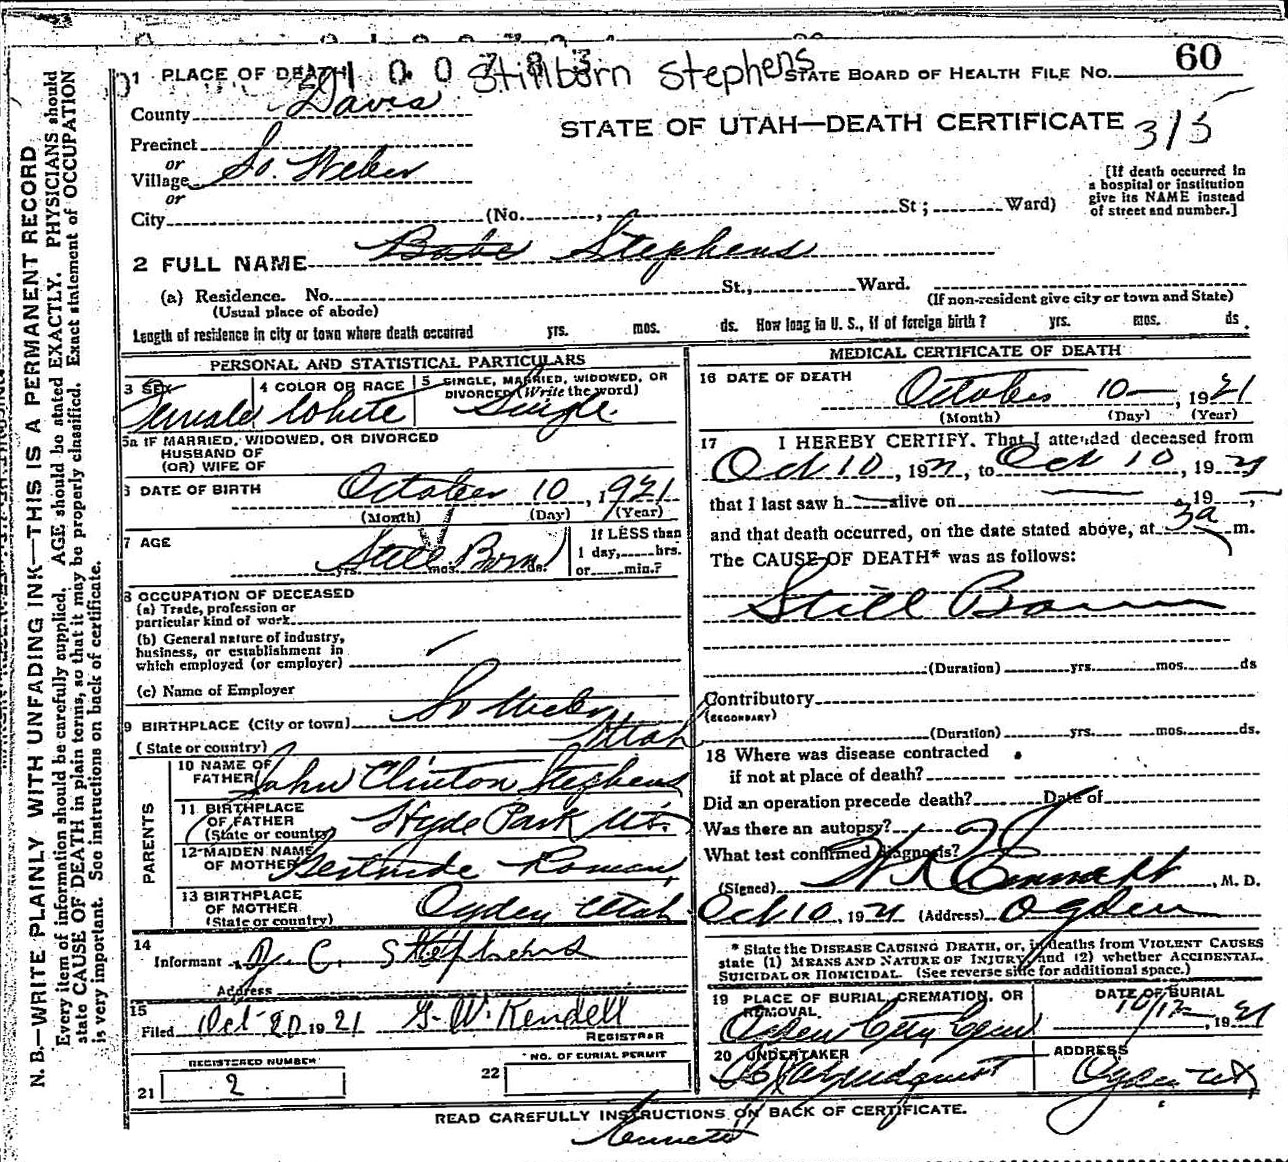 Stillborn Stephens
STATE BOARD OF HEALTH FILE NO. 60
1 PLACE OF DEATH
County Davis
STATE OF UTAH—DEATH CERTIFICATE 315
Precinct
or
Village So. Weber
or
City (No. , St; Ward)
[If death occurred in
a hospital or institution
give its NAME instead
of street and number.]
2 FULL NAME Babe Stephens
(a) Residence. No. St., Ward.
(Usual place of abode) (If non-resident give city or town and State)
Length of residence in city or town where death occurred yrs. mos. ds. How long in U. S., if of foreign birth? yrs. mos. ds.
N. B.—WRITE PLAINLY WITH UNFADING INK—THIS IS A PERMANENT RECORD
Every item of information should be carefully supplied. AGE should be stated EXACTLY. PHYSICIANS should
state CAUSE OF DEATH in plain terms, so that it may be properly classified. Exact statement of OCCUPATION
is very important. See instructions on back of certificate.
PERSONAL AND STATISTICAL PARTICULARS
3 SEX Female
4 COLOR OR RACE White
5 SINGLE, MARRIED, WIDOWED, OR
DIVORCED (Write the word) Single
5a IF MARRIED, WIDOWED, OR DIVORCED
HUSBAND OF
(OR) WIFE OF
6 DATE OF BIRTH October 10, 1921
(Month) (Day) (Year)
7 AGE Still Born
yrs. mos. ds.
If LESS than
1 day, hrs.
or min.?
8 OCCUPATION OF DECEASED
(a) Trade, profession or
particular kind of work
(b) General nature of industry,
business, or establishment in
which employed (or employer)
(c) Name of Employer
9 BIRTHPLACE (City or town) So Weber
(State or country) Utah
PARENTS
10 NAME OF
FATHER John Clinton Stephens
11 BIRTHPLACE
OF FATHER
(State or country) Hyde Park Ut.
12 MAIDEN NAME
OF MOTHER Gertrude Roman
13 BIRTHPLACE
OF MOTHER
(State or country) Ogden Utah
14
Informant J. C. Stephens
Address
15
Filed Oct 20 1921 G. W. Kendell
REGISTRAR
REGISTERED NUMBER
21 2
NO. OF BURIAL PERMIT
22
MEDICAL CERTIFICATE OF DEATH
16 DATE OF DEATH
October 10 , 1921
(Month) (Day) (Year)
17 I HEREBY CERTIFY, That I attended deceased from
Oct 10, 1921, to Oct 10, 1921
that I last saw h alive on , 19 ,
and that death occurred, on the date stated above, at 3a m.
The CAUSE OF DEATH* was as follows:
Still Born
(Duration) yrs. mos. ds
Contributory
(SECONDARY)
(Duration) yrs. mos. ds.
18 Where was disease contracted
if not at place of death?
Did an operation precede death? Date of
Was there an autopsy?
What test confirmed diagnosis?
(Signed) , M. D.
Oct 10, 1921 (Address) Ogden
* State the DISEASE CAUSING DEATH, or, in deaths from VIOLENT CAUSES
state (1) MEANS AND NATURE OF INJURY and (2) whether ACCIDENTAL,
SUICIDAL OR HOMICIDAL. (See reverse side for additional space.)
19 PLACE OF BURIAL, CREMATION, OR
REMOVAL
Ogden City Cem
DATE OF BURIAL
10/12, 1921
20 UNDERTAKER
Lindquist
ADDRESS
Ogden Ut
READ CAREFULLY INSTRUCTIONS ON BACK OF CERTIFICATE.